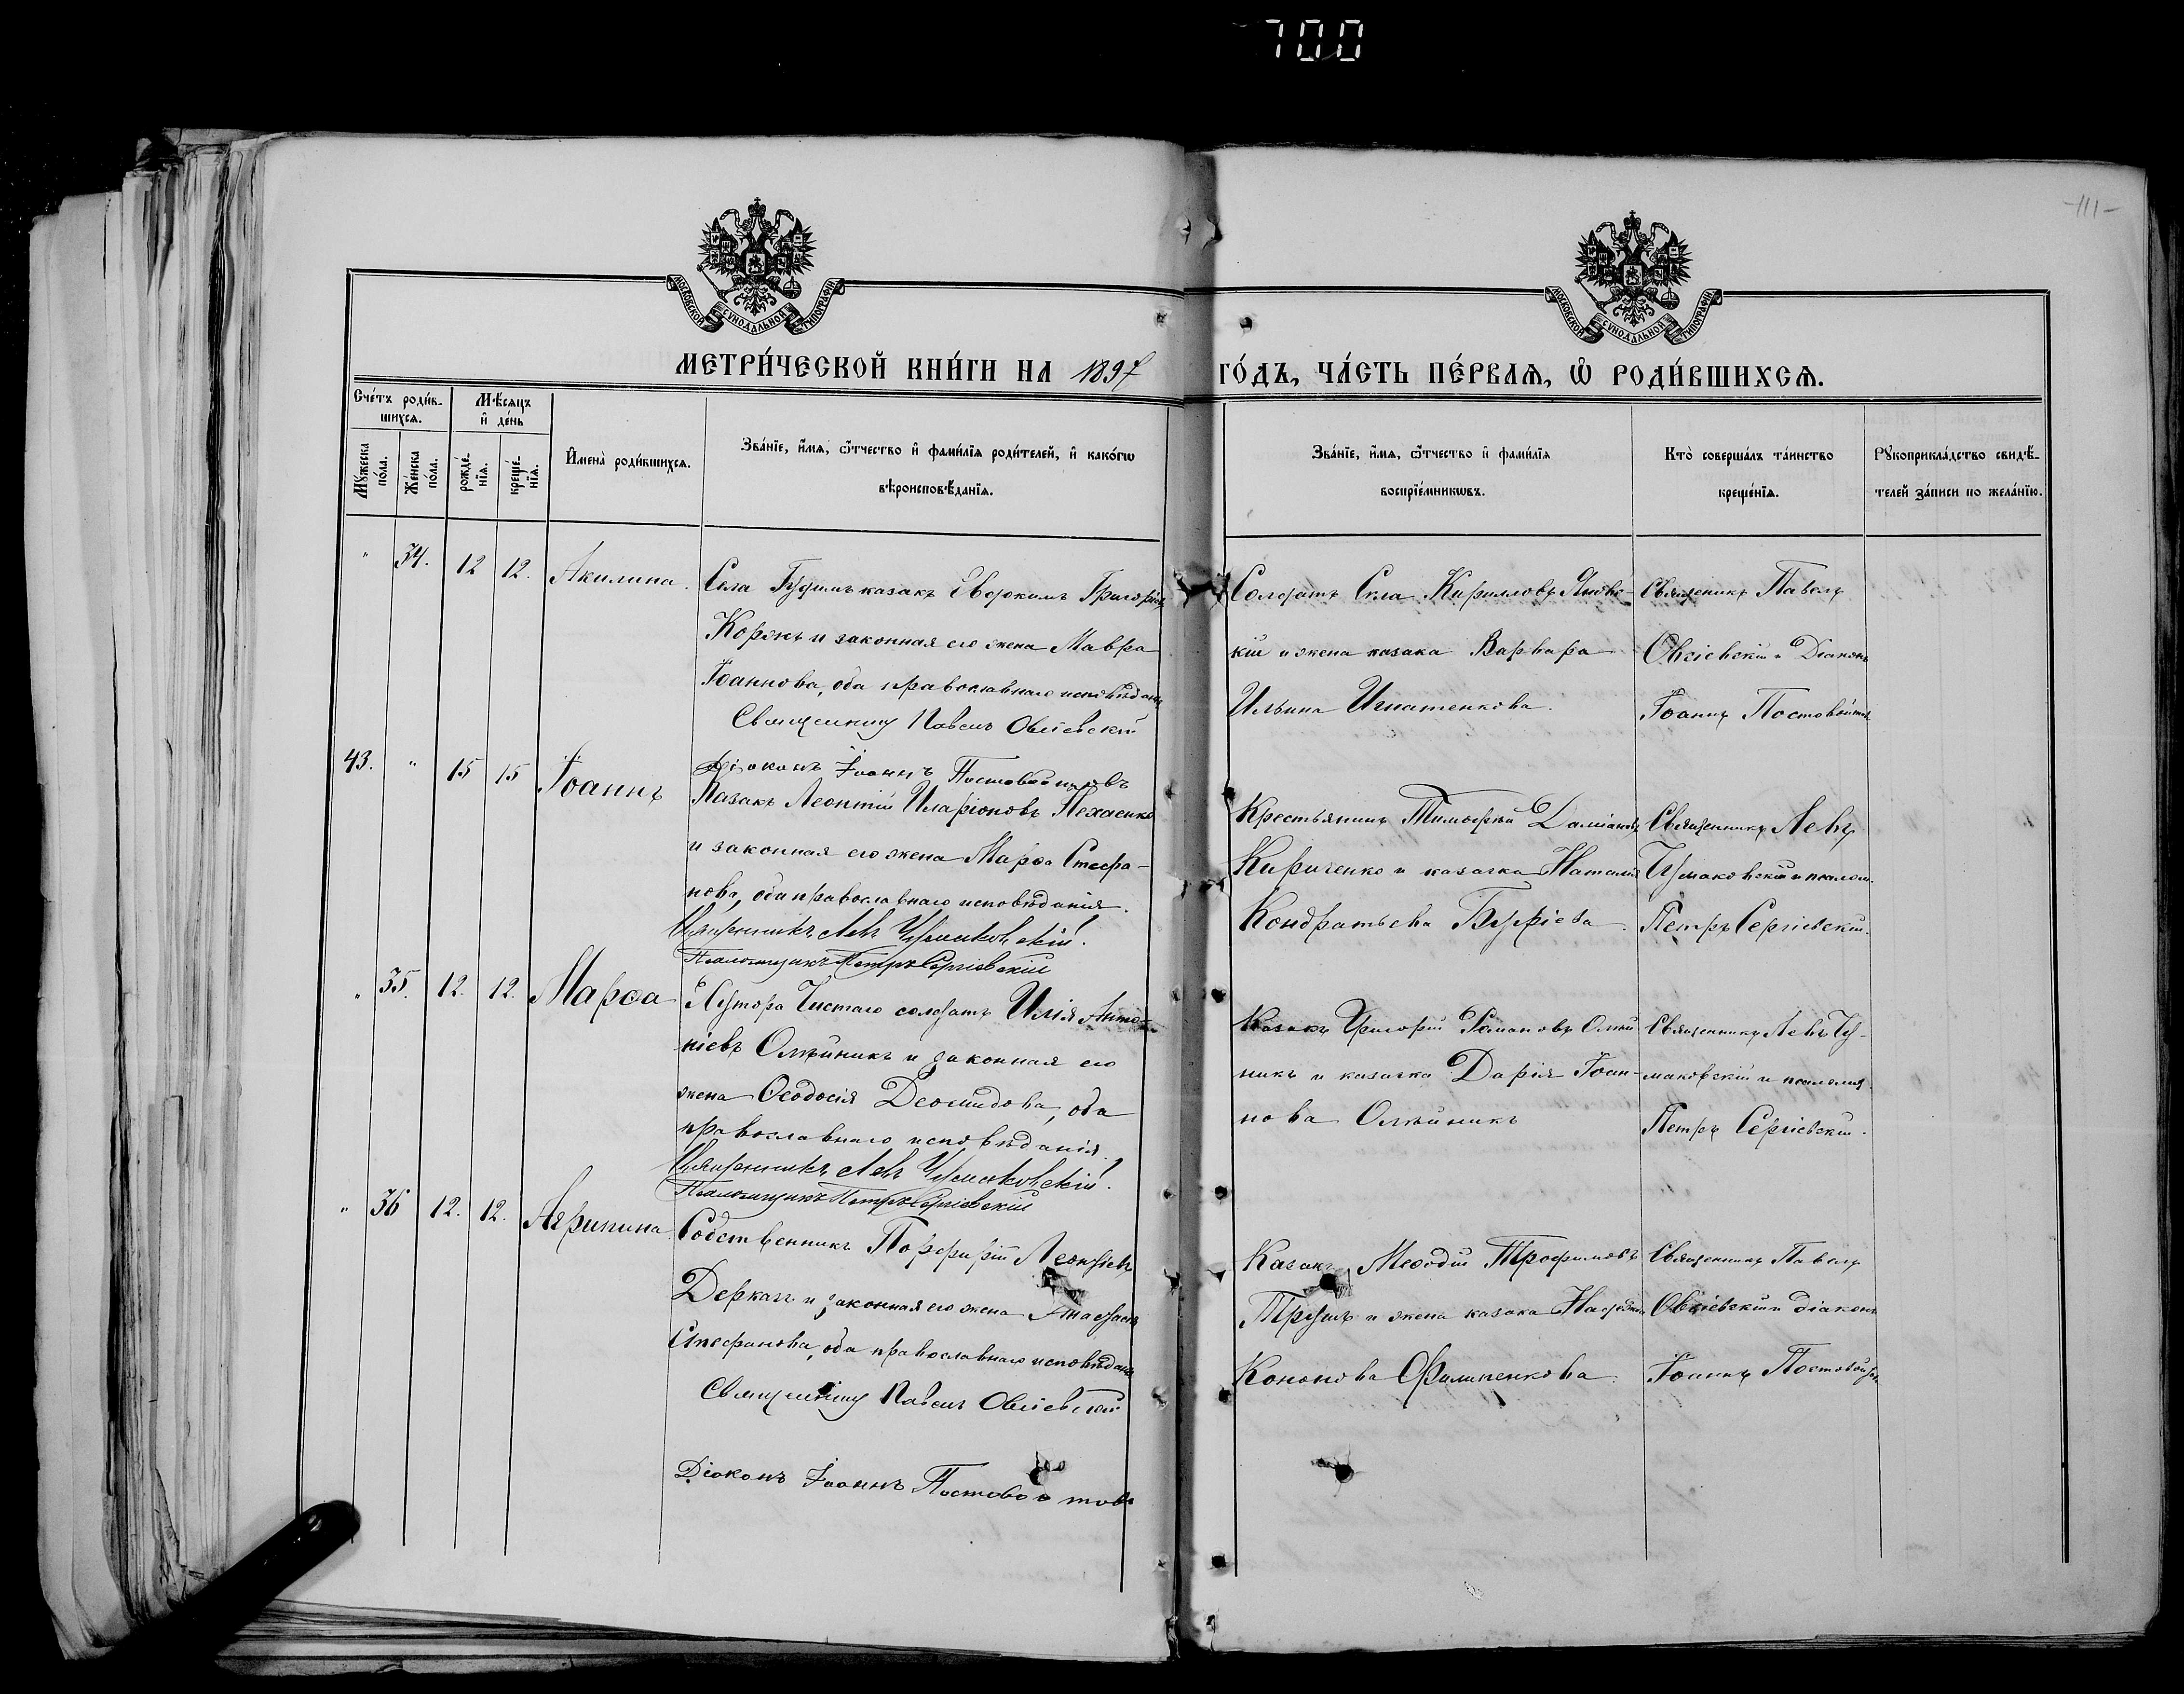 700
-111-
МОСКОВСКОЙ СѴНОДАЛЬНОЙ ТИПОГРАФІИ
МОСКОВСКОЙ СѴНОДАЛЬНОЙ ТИПОГРАФІИ
МЕТРИ́ЧЕСКОЙ КНИ́ГИ НА 1897
ГО́ДЪ, ЧА́СТЬ ПЕ́РВАЯ, Ѡ РОДИ́ВШИХСЯ.
Сче́тъ роди́в-
шихся.
Мѣ́сяцъ
и де́нь
Мꙋ́жеска
по́ла.
Же́нска
по́ла.
рожде́-
нїя.
креще́-
нїя.
Имена̀ роди́вшихся.
Зва́нїе, и́мя, ѻ́тчество и фами́лїя роди́телей, и како́гѡ
вѣроисповѣ́данїя.
Зва́нїе, и́мя, ѻ́тчество и фами́лїя
воспрїе́мникѡвъ.
Кто̀ соверша́лъ та́инство
креще́нїя.
Рꙋкоприкла́дство свидѣ́-
телей за́писи по жела́нїю.
" 34. 12 12. Акилина.
Села казакъ Евдокимъ
и законная его жена Мавра
Іоаннова, оба православнаго
Священникъ Павелъ Овсіевскій
Діаконъ Іоаннъ
Солдатъ Кирилловъ
кій и жена казака Варвара
Ильина Игнатенкова.
Священикъ Павелъ
Овсіевскій и Діаконъ
Іоаннъ
43. " 15 15 Іоаннъ
Казакъ Леонтій Иларіоновъ
и законная его жена Марѳа Стефа-
нова, оба православнаго исповѣданія.
Священникъ Левъ Чумаковскій.
Псаломщикъ Петръ Сергіевскій
Крестьянинъ Тимофей Даміановъ
Кириченко и казачка Наталія
Кондратьева
Священникъ Левъ
Чумаковскій и псалом.
Петръ Сергіевскій.
" 35. 12. 12. Марѳа
Хутора Чистаго солдатъ Илія Анто-
ніевъ Олѣйникъ и законная его
жена Ѳеодосія Деомидова, оба
православнаго исповѣданія.
Священникъ Левъ Чумаковскій.
Псаломщикъ Петръ Сергіевскій
Казакъ Григорій Романовъ Олѣй
никъ и казачка Дарія Іоан-
нова Олѣйникъ
Священникъ Левъ Чу-
маковскій и псаломщ.
Петръ Сергіевскій.
" 36 12. 12. Агрипина.
Собственникъ Порфирій
Деркачъ и законная его жена
Стефанова, оба православнаго
Священникъ Павелъ Овсіевскій
Діаконъ Іоаннъ
Казакъ Меѳодій Трофимовъ
и жена казака
Кононова Филипенкова.
Священникъ Павелъ
Овсіевскій и діаконъ
Іоаннъ